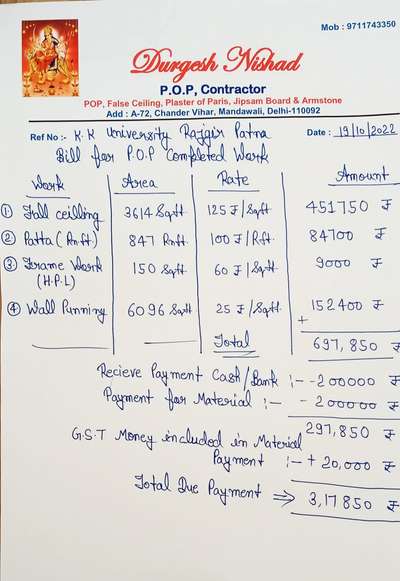 Mob : 9711743350
Durgesh Nishad
P.O.P, Contractor
POP, False Ceiling, Plaster of Paris, Jipsam Board & Armstone
Add : A-72, Chander Vihar, Mandawali, Delhi-110092
Ref No :- K.K University Rajgir Patna Date : 19/10/2022
Bill for P.O.P Completed Work
Work Area Rate Amount
① Fall ceilling 3614 Sqft 125 ₹/Sqft 451750 ₹
② Patta (Rnft.) 847 Rnft. 100 ₹/Rft. 84700 ₹
③ Frame Work 150 Sqft 60 ₹/Sqft. 9000 ₹
(H.P.L)
④ Wall Punning 6096 Sqft 25 ₹/Sqft. 152400 ₹
+
Total 697,850 ₹
Recieve Payment Cash/Bank :- -200000 ₹
Payment for Material :- -200000 ₹
297,850 ₹
G.S.T Money included in Material
Payment :- + 20,000 ₹
Total Due Payment ⇒ 3,17850 ₹